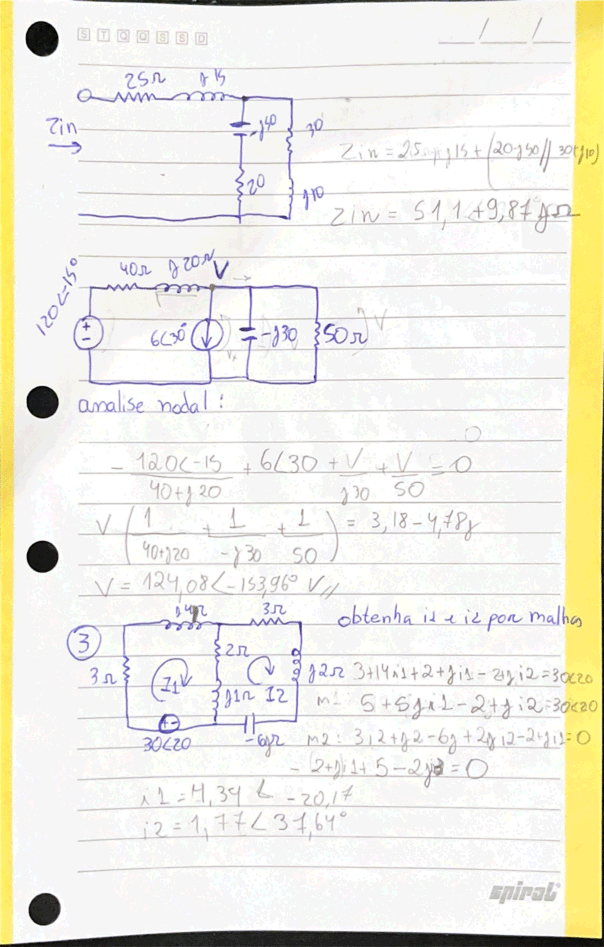 S T Q Q S S D
/ /
25Ω j15
Zin
-j40
30
20
j10
Zin = 25+j15+(20-j40//30+j10)
Zin = 51,1+9,87jΩ
120<-15°
40Ω j20Ω V
+
-
6<30°
-j30
50Ω
V
analise nodal:
- 120<-15 / 40+j20 + 6<30 + V / j30 + V / 50 = 0
0
V ( 1 / 40+j20 + 1 / -j30 + 1 / 50 ) = 3,18-4,78j
V = 124,08<-153,96° V//
3
j4Ω 3Ω
obtenha i1 e i2 por malhas
3Ω
2Ω
j2Ω
I1
j1Ω I2
+ -
30<20
-6jΩ
m1: 5+5ji1-2+ji2=30<20
m2: 3i2+j2-6j+2ji2-2+ji1=0
i1 = 4,34 < -20,17
i2 = 1,77<37,64°
spiral®